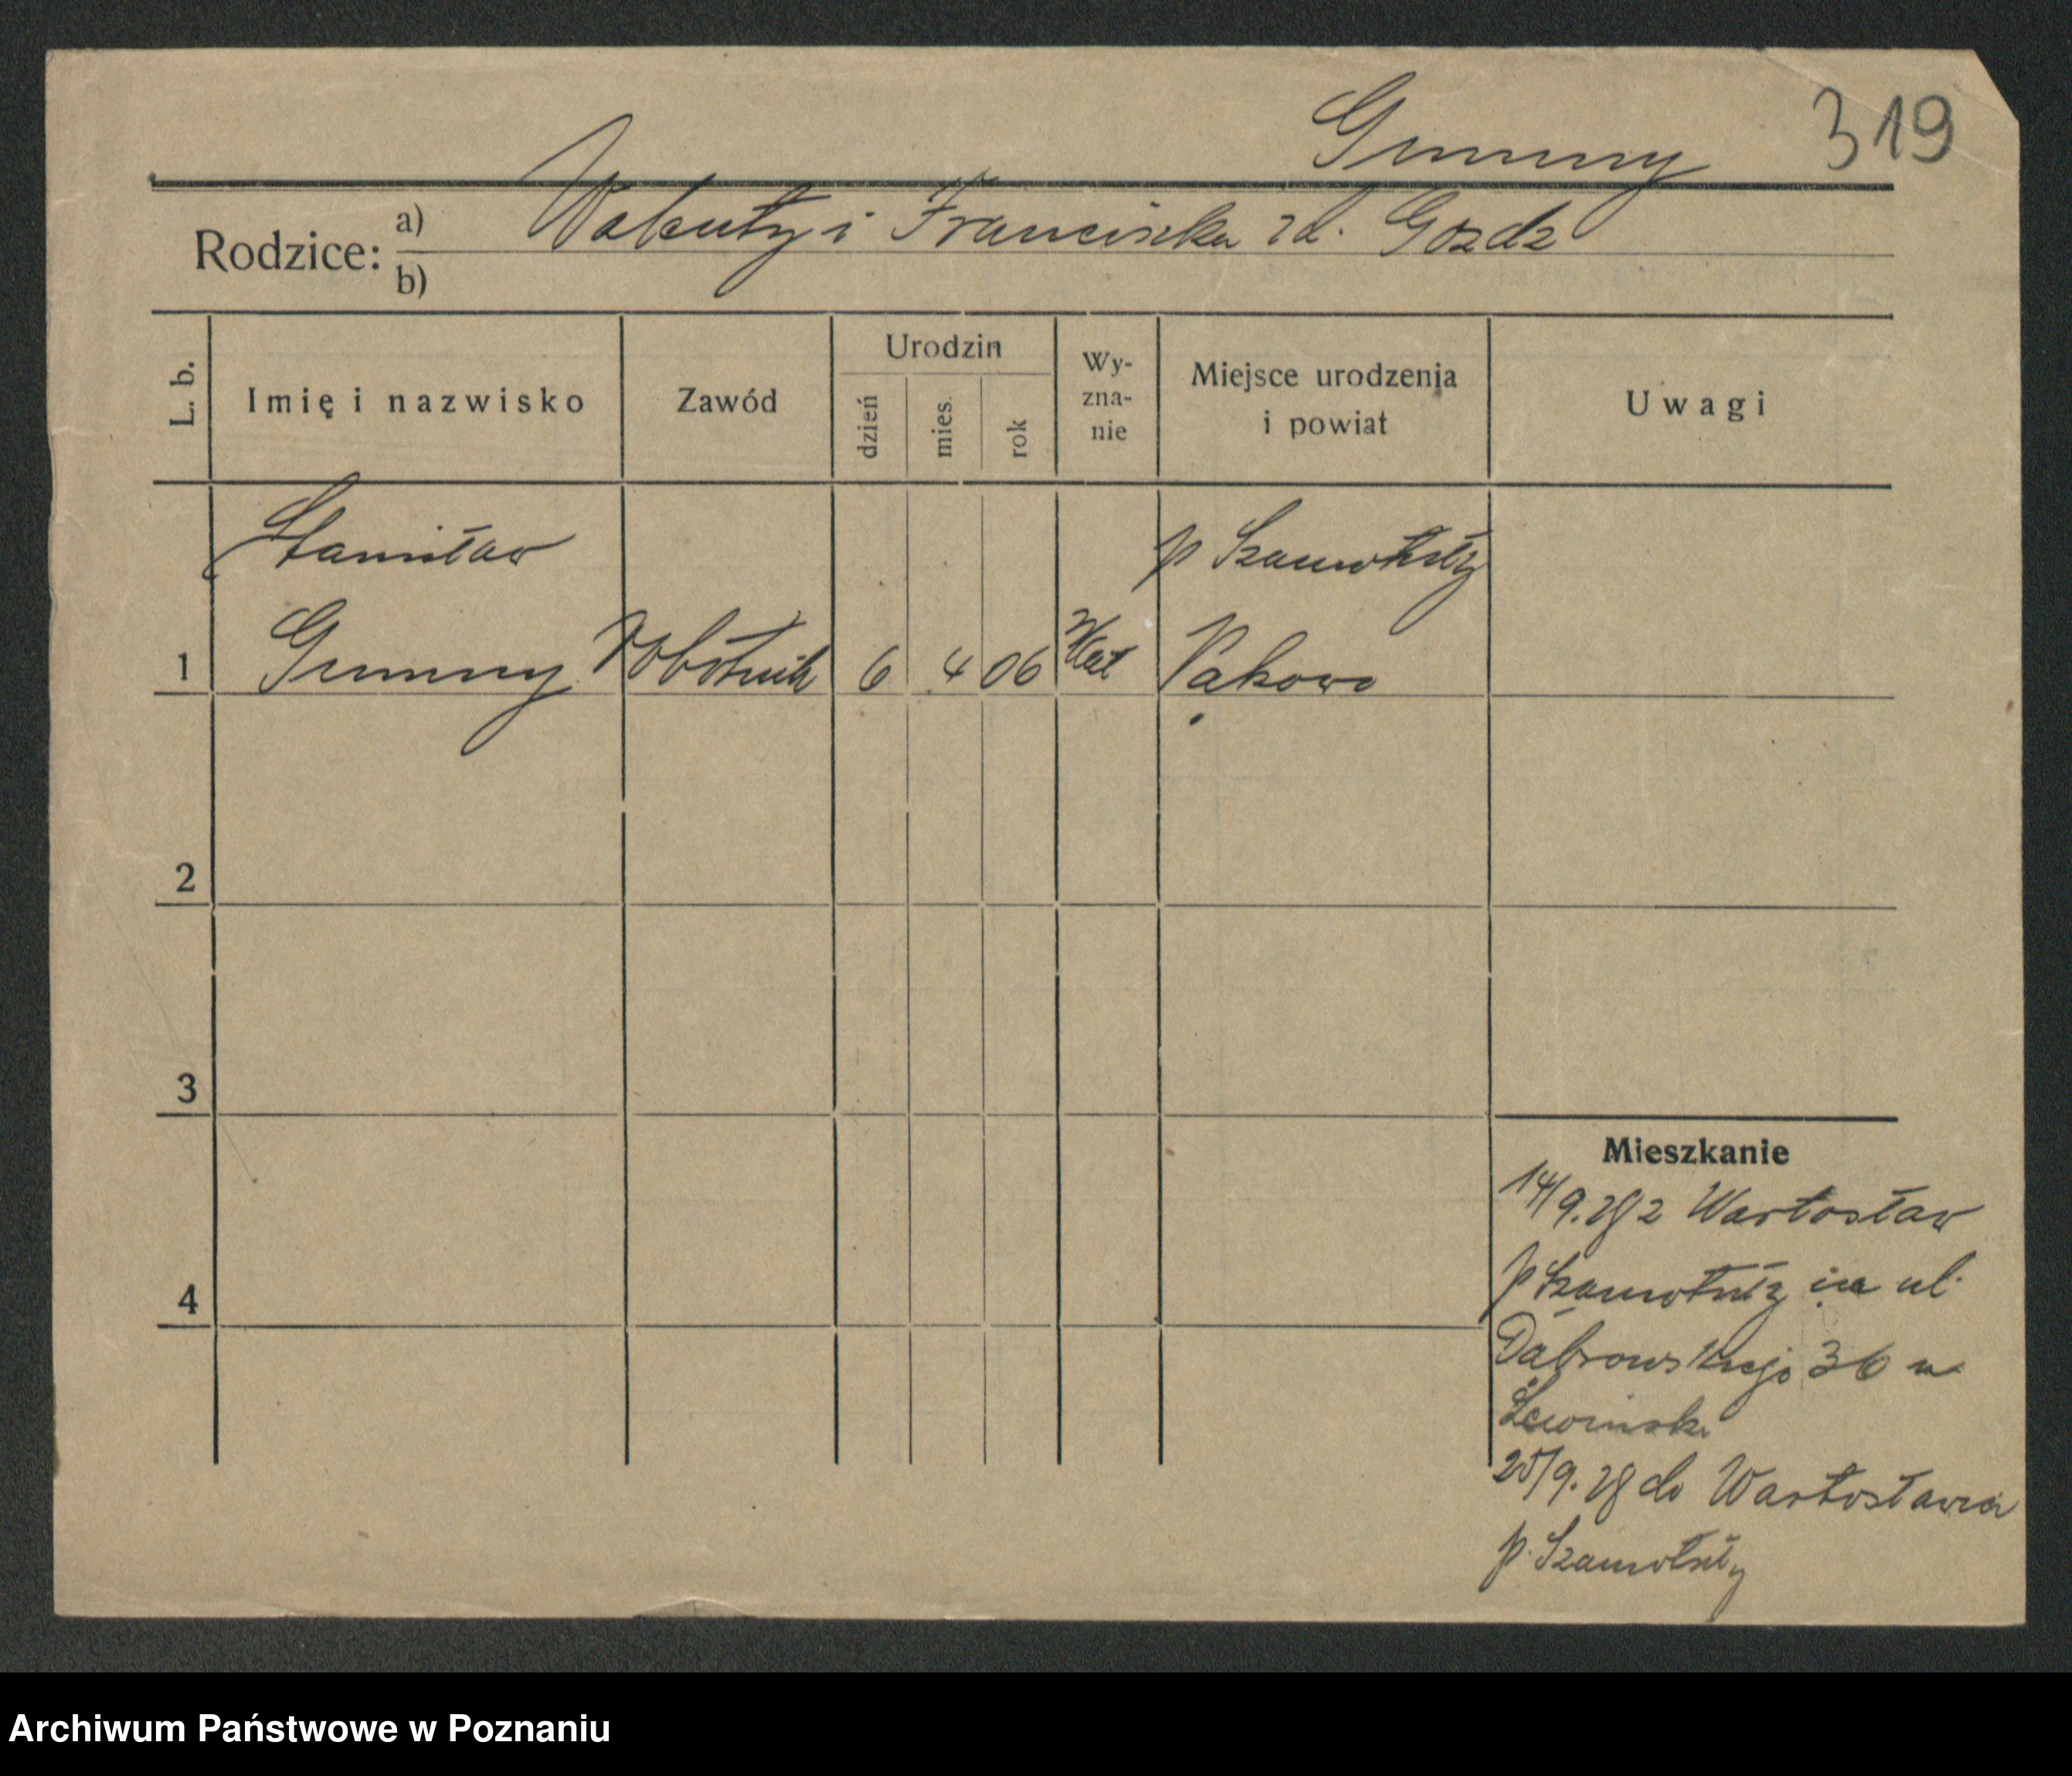 Gumny 319
Rodzice: a) Walenty i Franciszka zd. Gozdz
b)
L. b.
Imię i nazwisko
Zawód
Urodzin
dzień
mies.
rok
Wy-
zna-
nie
Miejsce urodzenia
i powiat
Uwagi
Stanisław p Szamotuły
1 Gumny robotnik 6 4 06 Kat Pąkowo
2
3
4
Mieszkanie
14/9.28 z Wartosław
p Szamotuły na ul.
Dąbrowskiego 36 u
25/9.28 do Wartosławia
p. Szamotuły
Archiwum Państwowe w Poznaniu